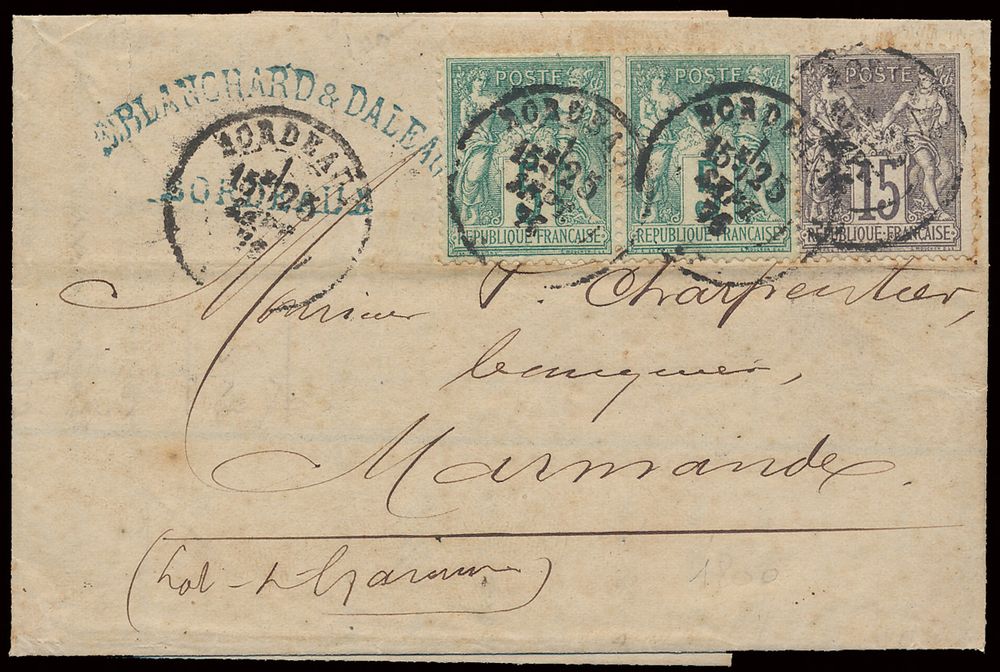 BLANCHARD & DALEAU
BORDEAUX
BORDEAUX
POSTE
5
REPUBLIQUE FRANCAISE
BORDEAUX
POSTE
5
REPUBLIQUE FRANCAISE
BORDEAUX
POSTE
15
REPUBLIQUE FRANCAISE
Monsieur Charpentier,
banquier,
Marmande.
(Lot-&-Garonne)